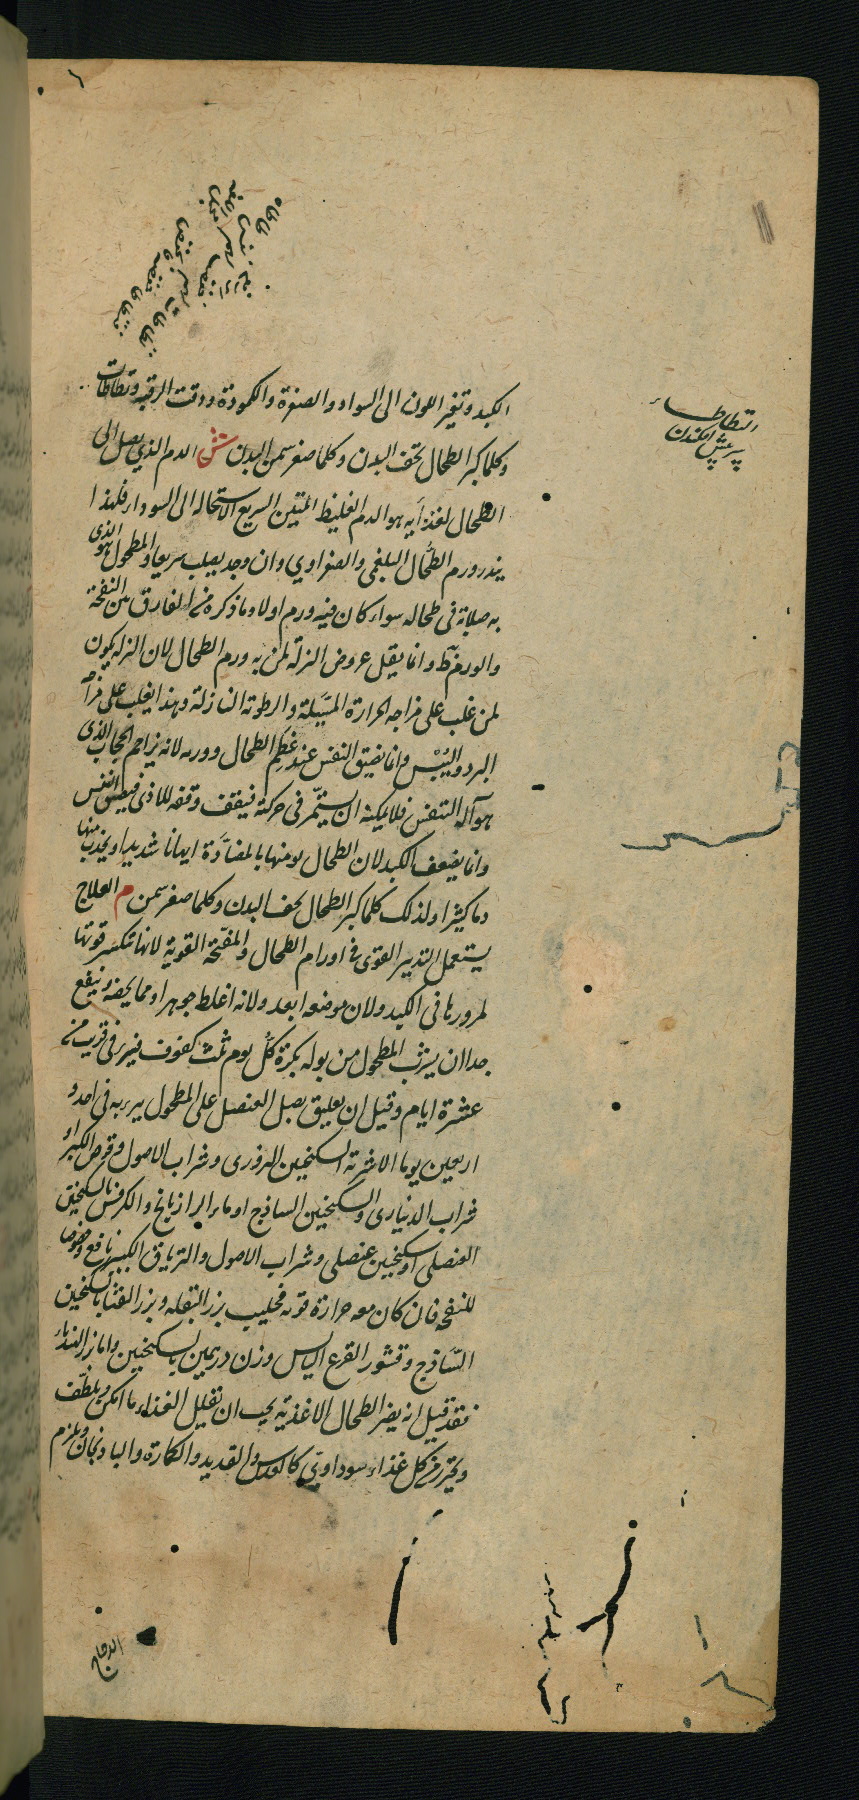 الكبد وتغير اللون الى السواد والصفرة والكمودة ودقت الرقبة وتطاطات
وكلما كبر الطحال نحف البدن وكلما صغر سمن البدن ش الدم الذي يصل الى
الطحال لغذائه هو الدم الغليظ المتين السريع الاستحالة الى السوداء فلهذا
يندر ورم الطحال البلغمي والصفراوي وان وجد يصلب سريعا والمطحول هو الذى
به صلابة فى طحاله سواء كان فيه ورم اولا وما ذكره من الفارق بين النفخة
والورم وانما يقل عروض النزلة لمن به ورم الطحال لان النزله يكون
لمن غلب على مزاجه الحرارة المسيلة والرطوبة النازلة وهذا يغلب على مزاجه
البرد واليبس وانما يضيق النفس عند عظم الطحال وورمه لانه يزاحم الحجاب الذى
هو آلة التنفس فلا يمكنه ان يستمر فى حركته فيقف وقفه للاذى فيضيق النفس
وانما يضعف الكبد لان الطحال يوهنها بالمضادة ايهانا شديدا ويجذب منها
دما كثيرا ولذلك كلما كبر الطحال نحف البدن وكلما صغر سمن م العلاج
يستعمل التدبير القوى فى اورام الطحال والمفتحة القوية لانها تنكسر قوتها
لمرورها فى الكبد ولان موضعه ابعد ولانه اغلظ جوهرا ومما يخصه وينفع
جدا ان يشرب المطحول من بوله بكرة كل يوم ثلث كفوف فيبرى فى قريب من
عشرة ايام وقيل ان تعليق بصل العنصل على المطحول يبريه فى احد و
اربعين يوما الاشربة السكنجبين البزورى وشراب الاصول وقرص الكبر او
شراب الدينارى والسكنجبين الساذج او ماء الرازيانج والكرفس بالسكنجبين
العنصلى او سكنجبين عنصلى وشراب الاصول والترياق الكبير نافع وخصوصا
للنفخة فان كان معه حرارة قوية فحليب بزر البقلة وبزر القثا بالسكنجبين
الساذج وقشور القرع اليابس وزن درهمين بالسكنجبين واما بزر الهندباء
فقد قيل انه يضر الطحال الاغذية يجب ان تقليل الغذاء ما امكن ويلطف
ويحترز من كل غذاء سوداوي كالعدس والقديد والكمأة والباذنجان ويلزم
التطاطا
الدجاج